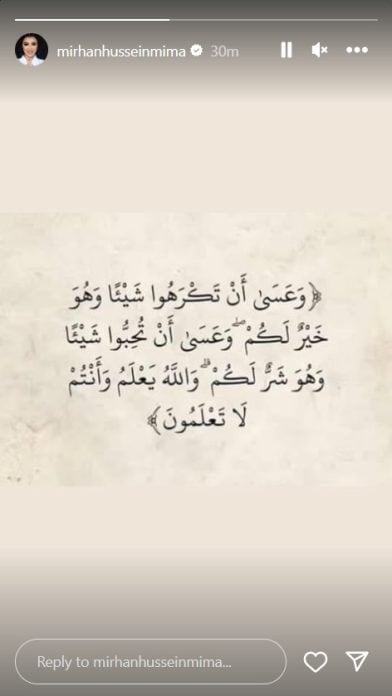 mirhanhusseinmima 30m
﴿وَعَسَىٰ أَنْ تَكْرَهُوا شَيْئًا وَهُوَ
خَيْرٌ لَكُمْ ۖ وَعَسَىٰ أَنْ تُحِبُّوا شَيْئًا
وَهُوَ شَرٌّ لَكُمْ ۗ وَاللَّهُ يَعْلَمُ وَأَنْتُمْ
لَا تَعْلَمُونَ﴾
Reply to mirhanhusseinmima...